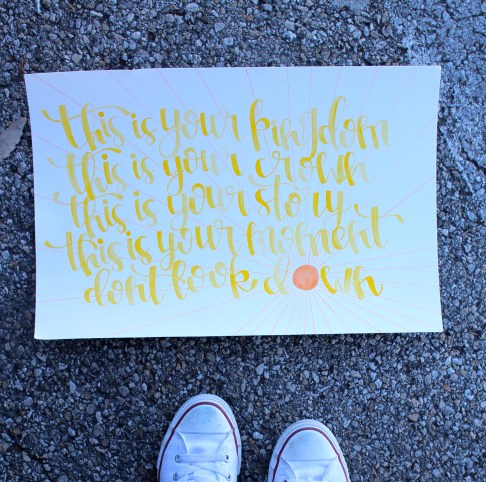 this is your kingdom
this is your crown
this is your story
this is your moment
dont look down